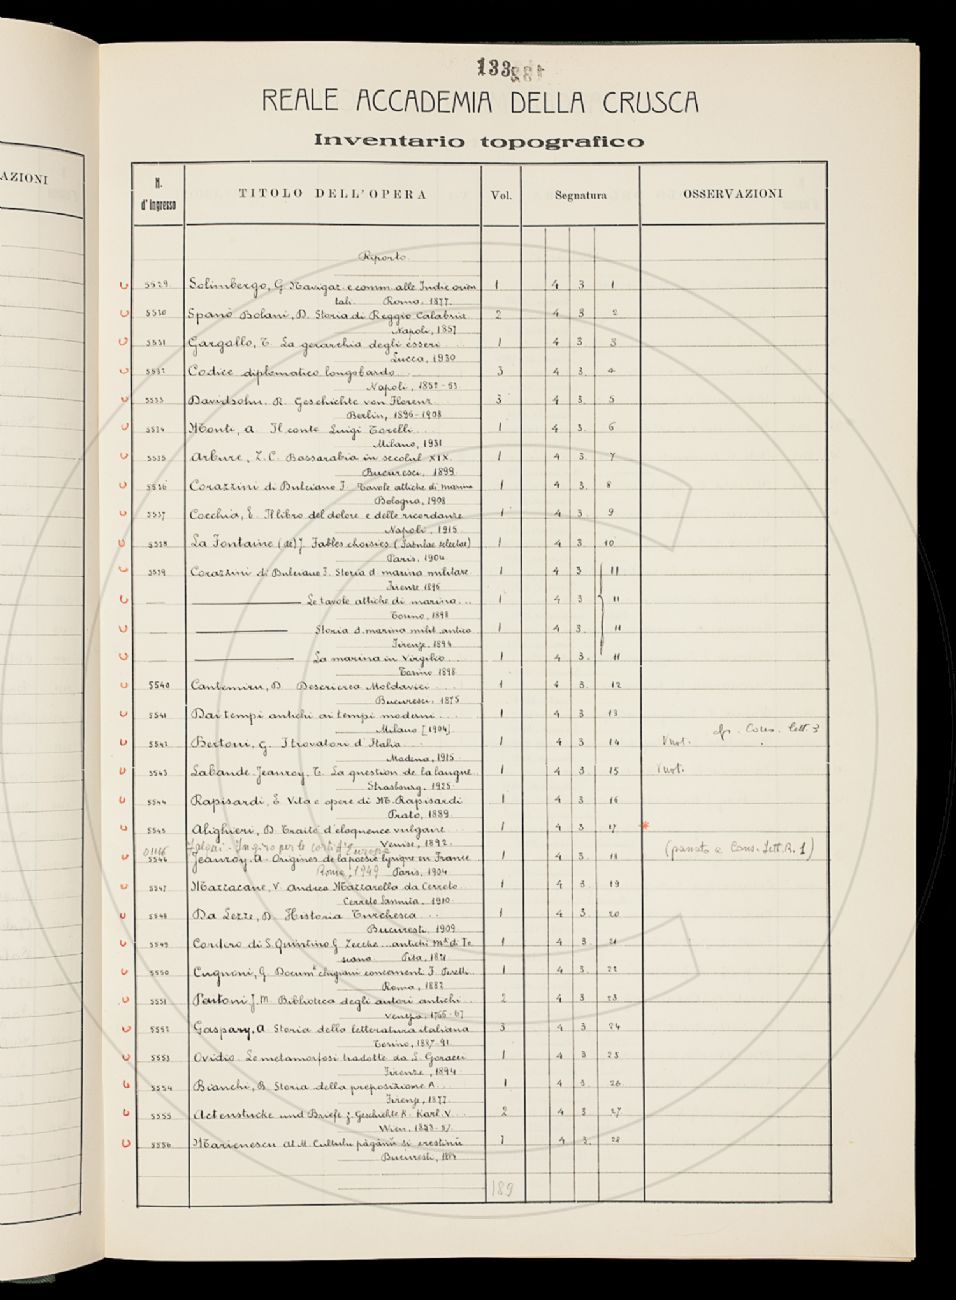 AZIONI
133
REALE ACCADEMIA DELLA CRUSCA
Inventario topografico
N. d'Ingresso TITOLO DELL'OPERA Vol. Segnatura OSSERVAZIONI
Riporto
5529 Solimbergo, G. Navigaz. e comm. alle Indie orien 1 4 3 1
tali. Roma, 1877.
5530 Spanò Bolani, D. Storia di Reggio Calabria 2 4 3 2
Napoli, 1857
5531 Gargallo, T. La gerarchia degli esseri 1 4 3 3
Lucca, 1930
5532 Codice diplomatico longobardo 3 4 3. 4
Napoli, 1852-53
5533 Davidsohn. R. Geschichte von Florenz 3 4 3. 5
Berlin, 1896-1908
5534 Monti, A. Il conte Luigi Torelli 1 4 3. 6
Milano, 1931
5535 Arbure, Z. C. Bassarabia in secolul XIX. 1 4 3. 7
Bucuresci, 1899
5536 Corazzini di Bulciano F. Tavole attiche di marina 1 4 3. 8
Bologna, 1908
5537 Cocchia, E. Il libro del dolore e delle ricordanze 1 4 3. 9
Napoli, 1915
5538 La Fontaine (de) J. Fables choisies (Fabulae selectae) 1 4 3 10
Paris, 1904
5539 Corazzini di Bulciano F. Storia d. marina militare 1 4 3 11
Firenze 1896
Le tavole attiche di marina... 1 4 3 11
Torino, 1898
Storia d. marina milit. antica 1 4 3. 11
Firenze, 1894
La marina in Virgilio 1 4 3. 11
Torino 1898
5540 Cantemiru, D. Descrierea Moldaviei 1 4 3. 12
Bucuresci, 1875
5541 Dai tempi antichi ai tempi moderni 1 4 3 13
Milano [1904]
cfr. Cons. Lett. 3
5542 Bertoni, G. I trovatori d'Italia 1 4 3 14 Vuot.
Modena, 1915
5543 Labande-Jeanroy, T. La question de la langue 1 4 3 15 Vuot.
Strasbourg, 1925
5544 Rapisardi, E. Vita e opere di M. Rapisardi 1 4 3 16
Prato, 1889
5545 Alighieri, D. Traité d'eloquence vulgaire 1 4 3 17 *
Venise, 1892.
In giro per le corti d'Europa
5546 Jeanroy. A. Origines de la poésie lyrique en France 1 4 3. 18 (passato a Cons. Lett. R. 1)
Roma, 1949 Paris, 1904
5547 Mazzacane, V. Andrea Mazzarella da Cerreto 1 4 3 19
Cerreto Sannita, 1910
5548 Da Lezze, D. Historia Turchesca 1 4 3. 20
Bucuresti, 1909
5549 Cordero di S. Quintino G. Zecche... antichi M.si di To 1 4 3. 21
scana Pisa, 1821
5550 Cugnoni, G. Docum.ti chigiani concernenti F. Peretti 1 4 3. 22
Roma, 1882
5551 Paitoni J. M. Biblioteca degli autori antichi 2 4 3 23
Venezia, 1766-67
5552 Gaspary, A. Storia della letteratura italiana 3 4 3 24
Torino, 1887-91
5553 Ovidio. Le metamorfosi tradotte da L. Goracci 1 4 3 25
Firenze, 1894
5554 Bianchi, B. Storia della preposizione A 1 4 3. 26
Firenze, 1877
5555 Actenstücke und Briefe z. Geschichte K. Karl V. 2 4 3. 27
Wien, 1853-57
5556 Marienescu At. M. Cultulu păgânŭ si crestinŭ 1 4 3. 28
Bucuresti,
189